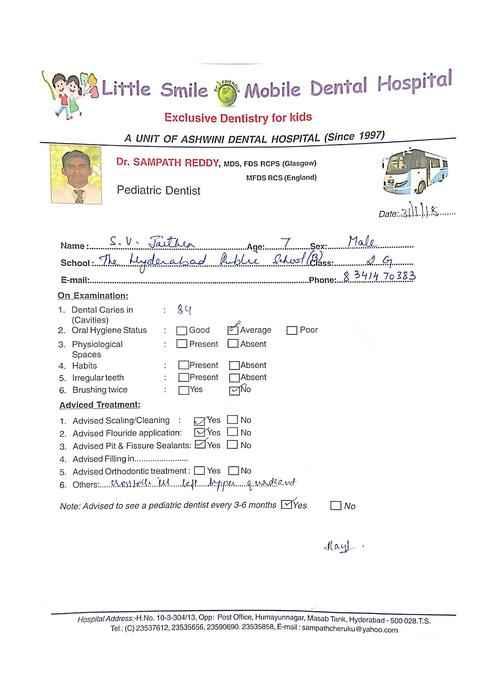 Little Smile Mobile Dental Hospital
Exclusive Dentistry for kids
A UNIT OF ASHWINI DENTAL HOSPITAL (Since 1997)
Dr. SAMPATH REDDY, MDS, FDS RCPS (Glasgow)
MFDS RCS (England)
Pediatric Dentist
Date: 31/1/18
Name: S. V. Age: 7 Sex: Male
School: The Hyderabad Public School (B) Class: 2 G
E-mail: Phone: 8341470383
On Examination:
1. Dental Caries in (Cavities) : 84
2. Oral Hygiene Status : Good Average Poor
3. Physiological Spaces : Present Absent
4. Habits : Present Absent
5. Irregular teeth : Present Absent
6. Brushing twice : Yes No
Adviced Treatment:
1. Advised Scaling/Cleaning : Yes No
2. Advised Flouride application: Yes No
3. Advised Pit & Fissure Sealants: Yes No
4. Advised Filling in......................
5. Advised Orthodontic treatment : Yes No
6. Others: left upper quadrant
Note: Advised to see a pediatric dentist every 3-6 months Yes No
Hospital Address:-H.No. 10-3-304/13, Opp: Post Office, Humayunnagar, Masab Tank, Hyderabad - 500 028.T.S.
Tel.: (C) 23537612, 23535656, 23590690, 23535858, E-mail : sampathcheruku@yahoo.com